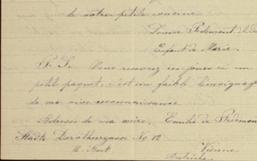 de votre petite cousine
Louise Pedemont
Enfant de Marie.
P. S. Vous recevrez un jour ci un
petit paquet, c'est un faible témoignage
de ma vive reconnaissance.
Adresse de ma mère. Emilie de
Stadt Dorotheergasse No 12
Vienne
Autriche